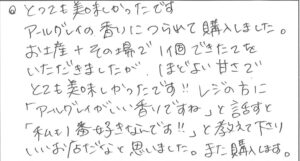 ② とっても美味しかったです
アールグレイの香りにつられて購入しました。
お土産+その場で1個できたてを
いただきましたが、ほどよい甘さで
とても美味しかったです!! レジの方に
「アールグレイがいい香りですね」と話すと
「私も1番好きなんです!!」と教えて下さり
いいお店だなと思いました。また購入します。